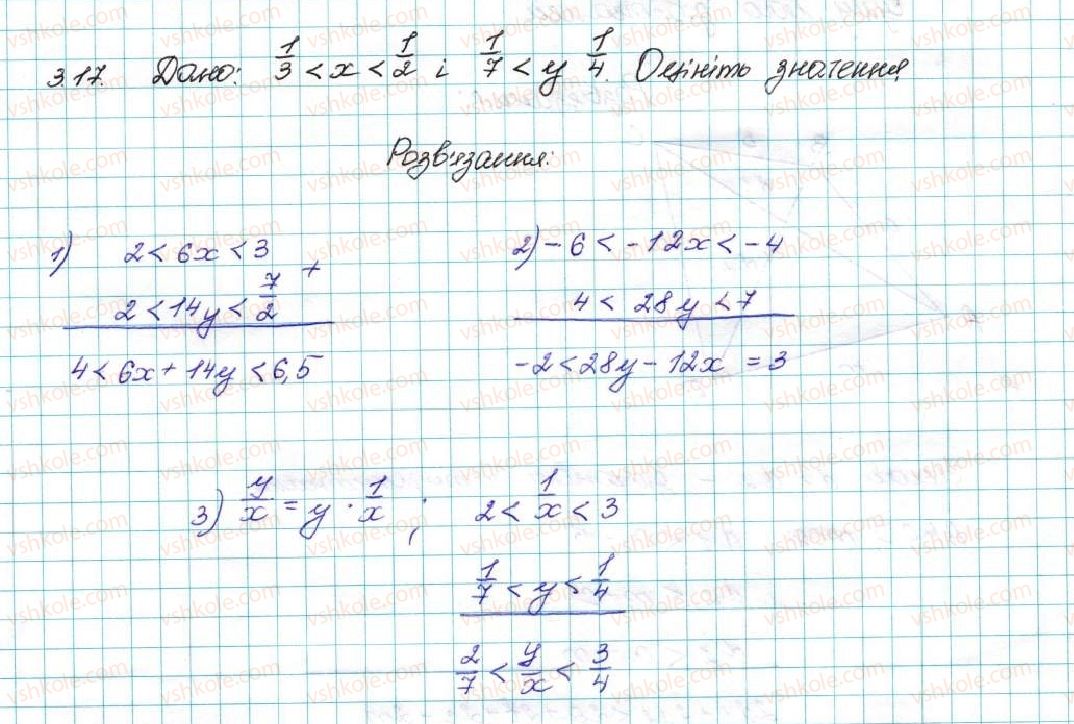 3.17. Дано: 1/3 < x < 1/2 і 1/7 < y 1/4. Оцініть значення
Розв'язання:
1) 2 < 6x < 3
+
2 < 14y < 7/2
4 < 6x + 14y < 6,5
2) -6 < -12x < -4
4 < 28y < 7
-2 < 28y - 12x = 3
3) y/x = y · 1/x ; 2 < 1/x < 3
1/7 < y < 1/4
2/7 < y/x < 3/4
vshkole.com